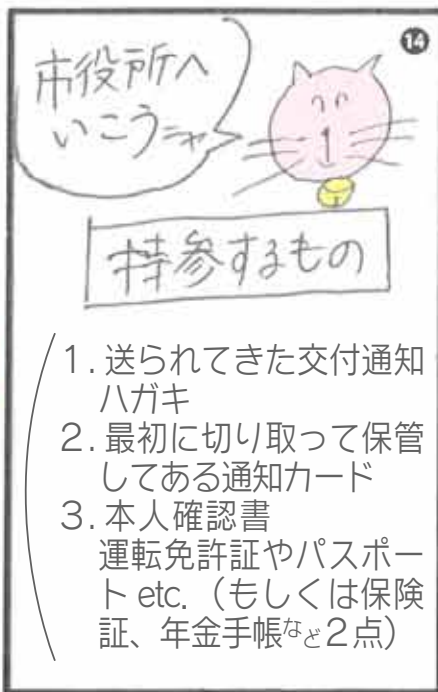 ⓮
市役所へ
いこうニャ
持参するもの
1. 送られてきた交付通知
ハガキ
2. 最初に切り取って保管
してある通知カード
3. 本人確認書
運転免許証やパスポー
ト etc.（もしくは保険
証、年金手帳など2点）